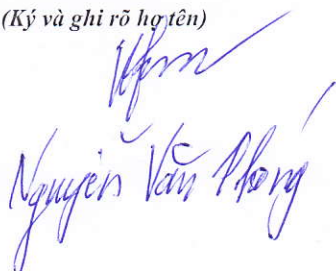 (Ký và ghi rõ họ tên)
Nguyễn Văn Phong